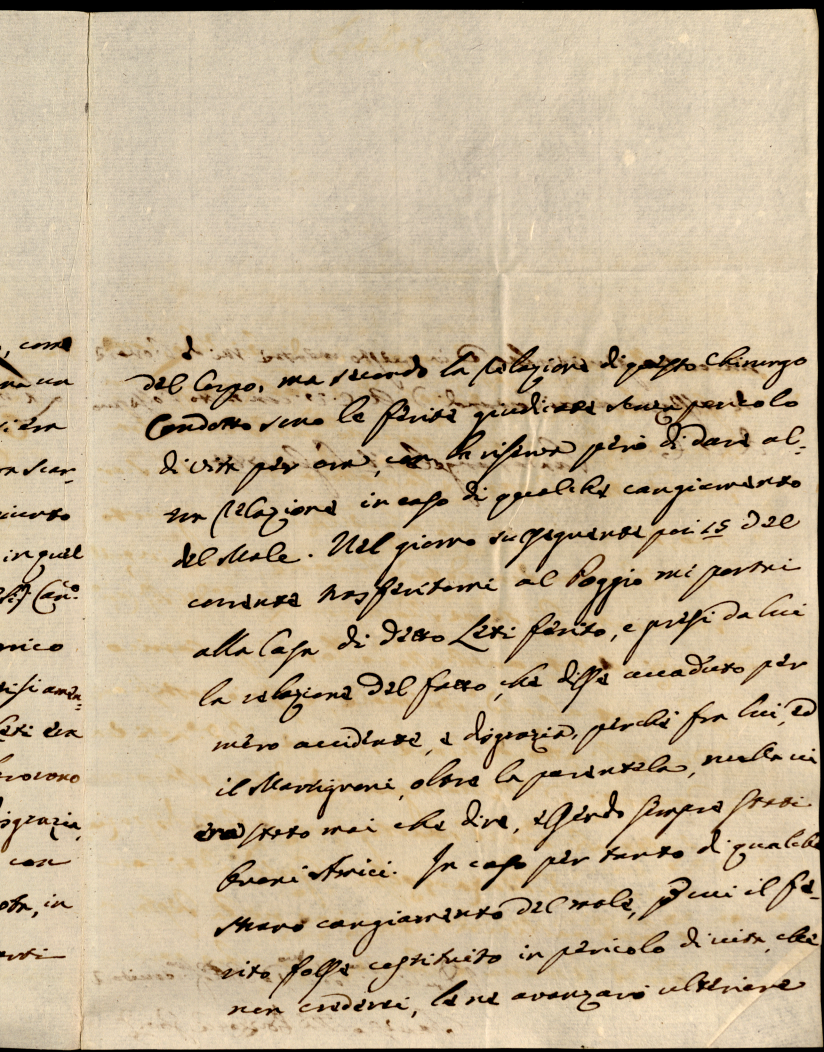 , come
na un
si era
ra scar-
in quel
Can.co
mico
Leti era
sgrazia,
con
in
del Corpo, ma secondo la relazione di questo Chirurgo
Condotto sono le ferite giudicate senza pericolo
di vita per ora, con la riserva però di dare al-
tra relazione in caso di qualche cangiamento
del Male. Nel giorno susseguente poi 15 del
corrente trasferitomi al Poggio mi portai
alla Casa di detto Leti ferito, e presi da lui
la relazione del fatto, che disse accaduto per
mero accidente, e disgrazia, perché fra lui, ed
il Martignoni, oltre la parentela, nulla vi
era stato mai che dire, essendo sempre stati
buoni Amici. In caso per tanto di qualche
strano cangiamento del male, per cui il fe-
rito fosse costituito in pericolo di vita, che
non crederei, le ne avanzarò ulteriore